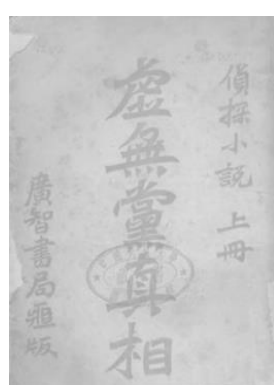 偵探小説 上冊
虛無黨真相
廣智書局通版